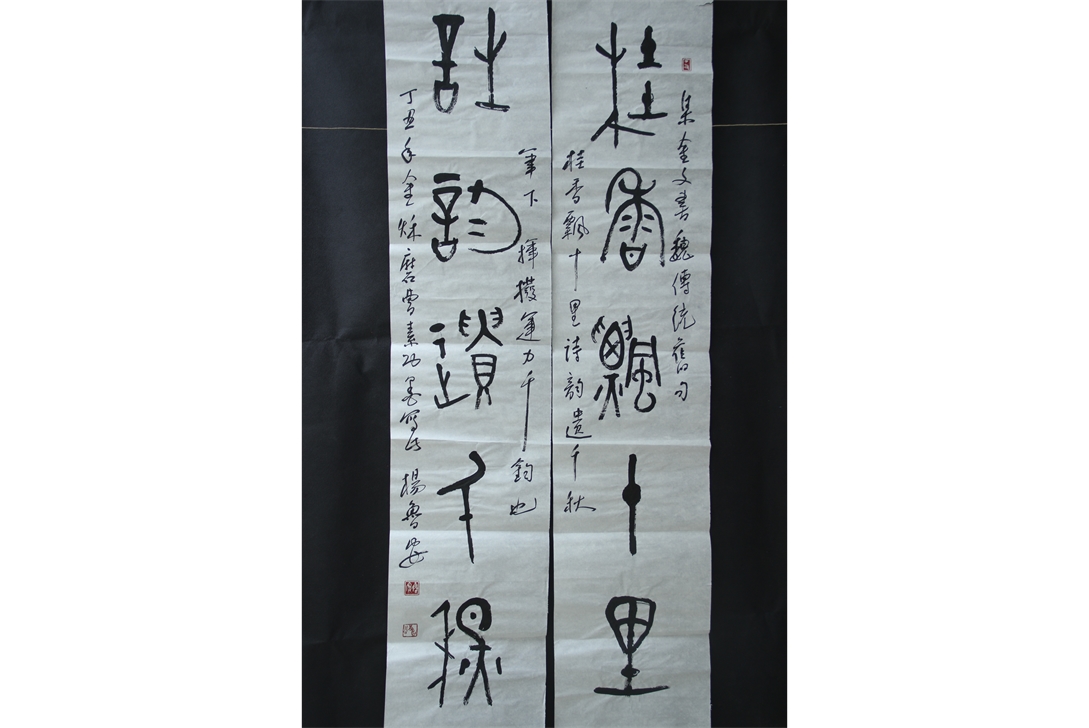 集金文書魏傳統舊句
桂香飄十里
桂香飄十里詩韵遺千秋
筆下揮撥運力千鈞也
詩韵遺千秋
丁丑年金秋磨曹素功墨寫此 楊魯安